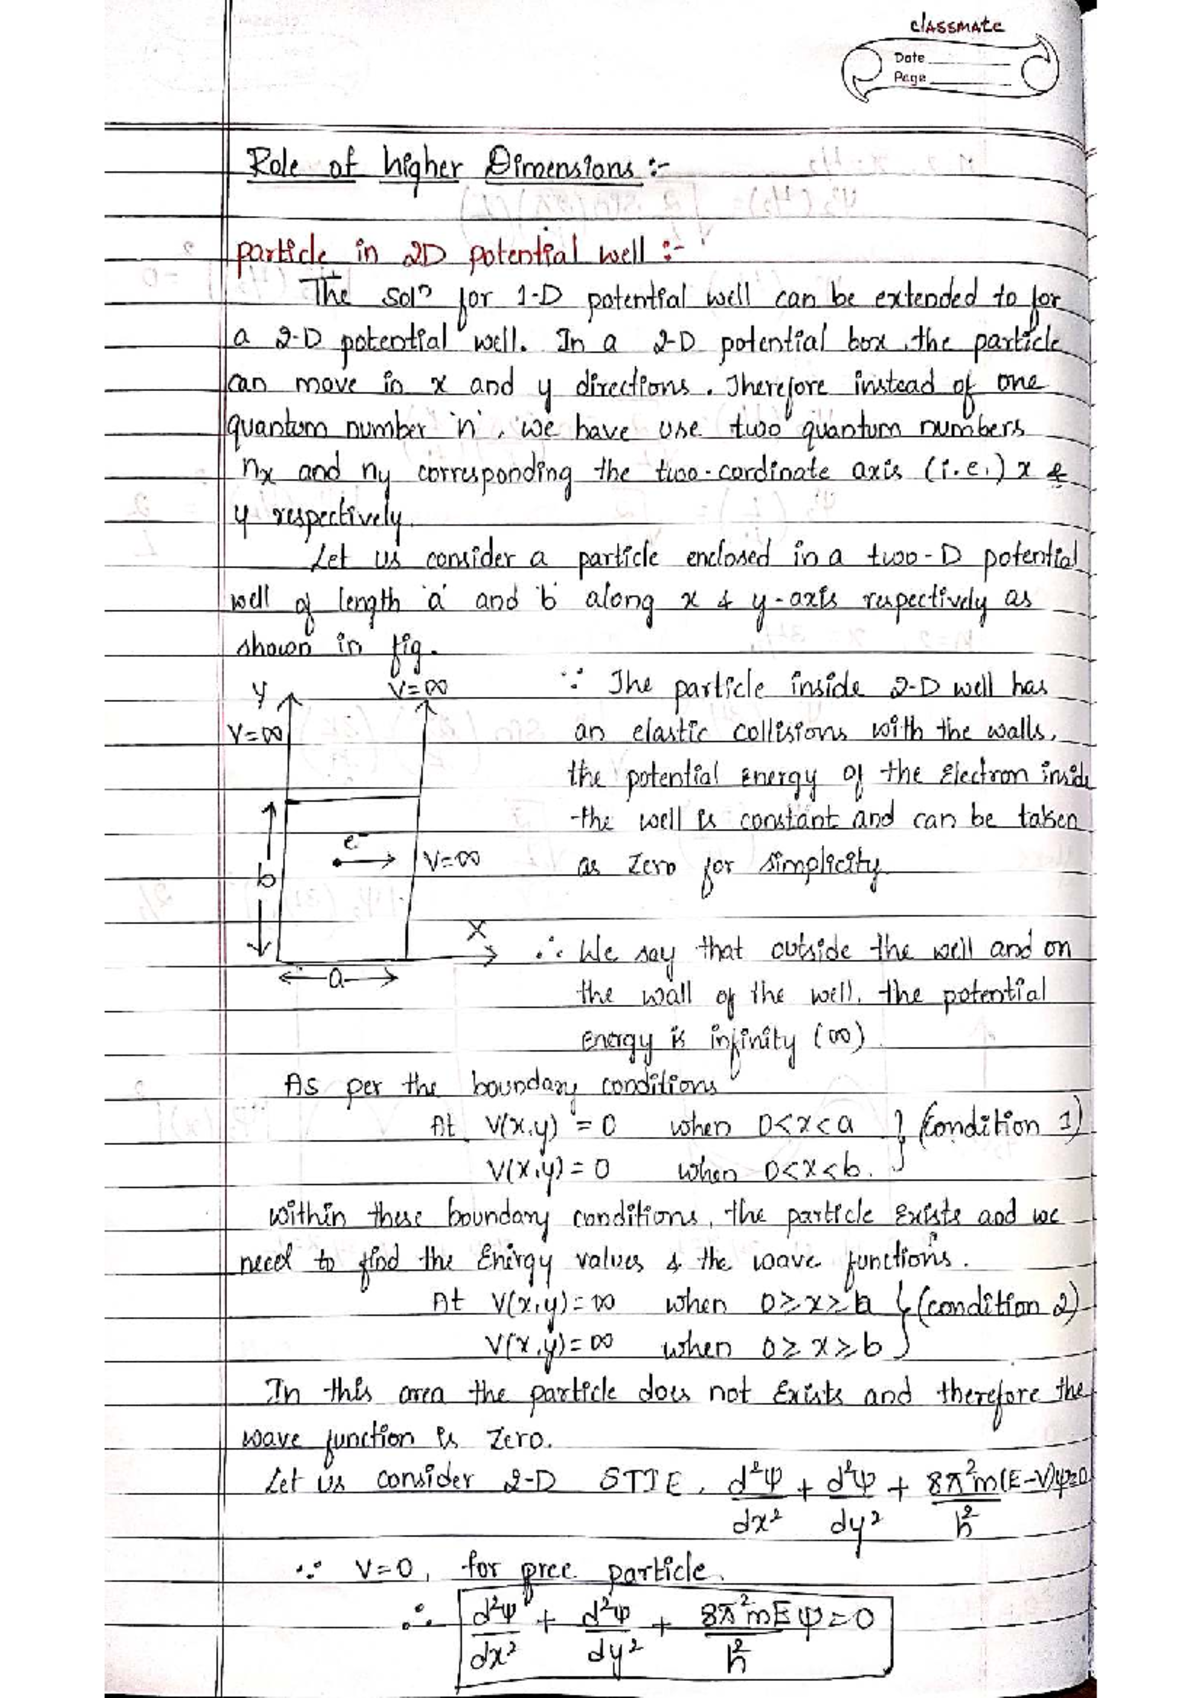 classmate
Date
Page
Role of higher Dimensions :-
particle in 2D potential well :-
The solⁿ for 1-D potential well can be extended to for
a 2-D potential well. In a 2-D potential box, the particle
can move in x and y directions. Therefore instead of one
quantum number 'n', we have use two quantum numbers
nx and ny corresponding the two-cordinate axis (i.e.,) x &
y respectively.
Let us consider a particle enclosed in a two-D potential
well of length 'a' and 'b' along x & y-axis respectively as
shown in fig.
Y V=∞
V=∞
e⁻
V=∞
b
X
a
∵ The particle inside 2-D well has
an elastic collisions with the walls,
the potential Energy of the Electron inside
the well is constant and can be taken
as Zero for simplicity.
∴ We say that outside the well and on
the wall of the well, the potential
Energy is infinity (∞).
As per the boundary conditions
At V(x,y) = 0 when 0<x<a } (condition 1)
V(x,y) = 0 when 0<x<b.
within these boundary conditions, the particle Exists and we
need to find the Energy values & the wave functions.
At V(x,y) = ∞ when 0≥x≥a } (condition 2)
V(x,y) = ∞ when 0≥x≥b
In this area the particle does not Exists and therefore the
wave function is Zero.
Let us consider 2-D STIE, d²ψ/dx² + d²ψ/dy² + 8π²m/h² (E-V)ψ=0
∵ V=0, for free particle.
∴ d²ψ/dx² + d²ψ/dy² + 8π²mE/h² ψ=0